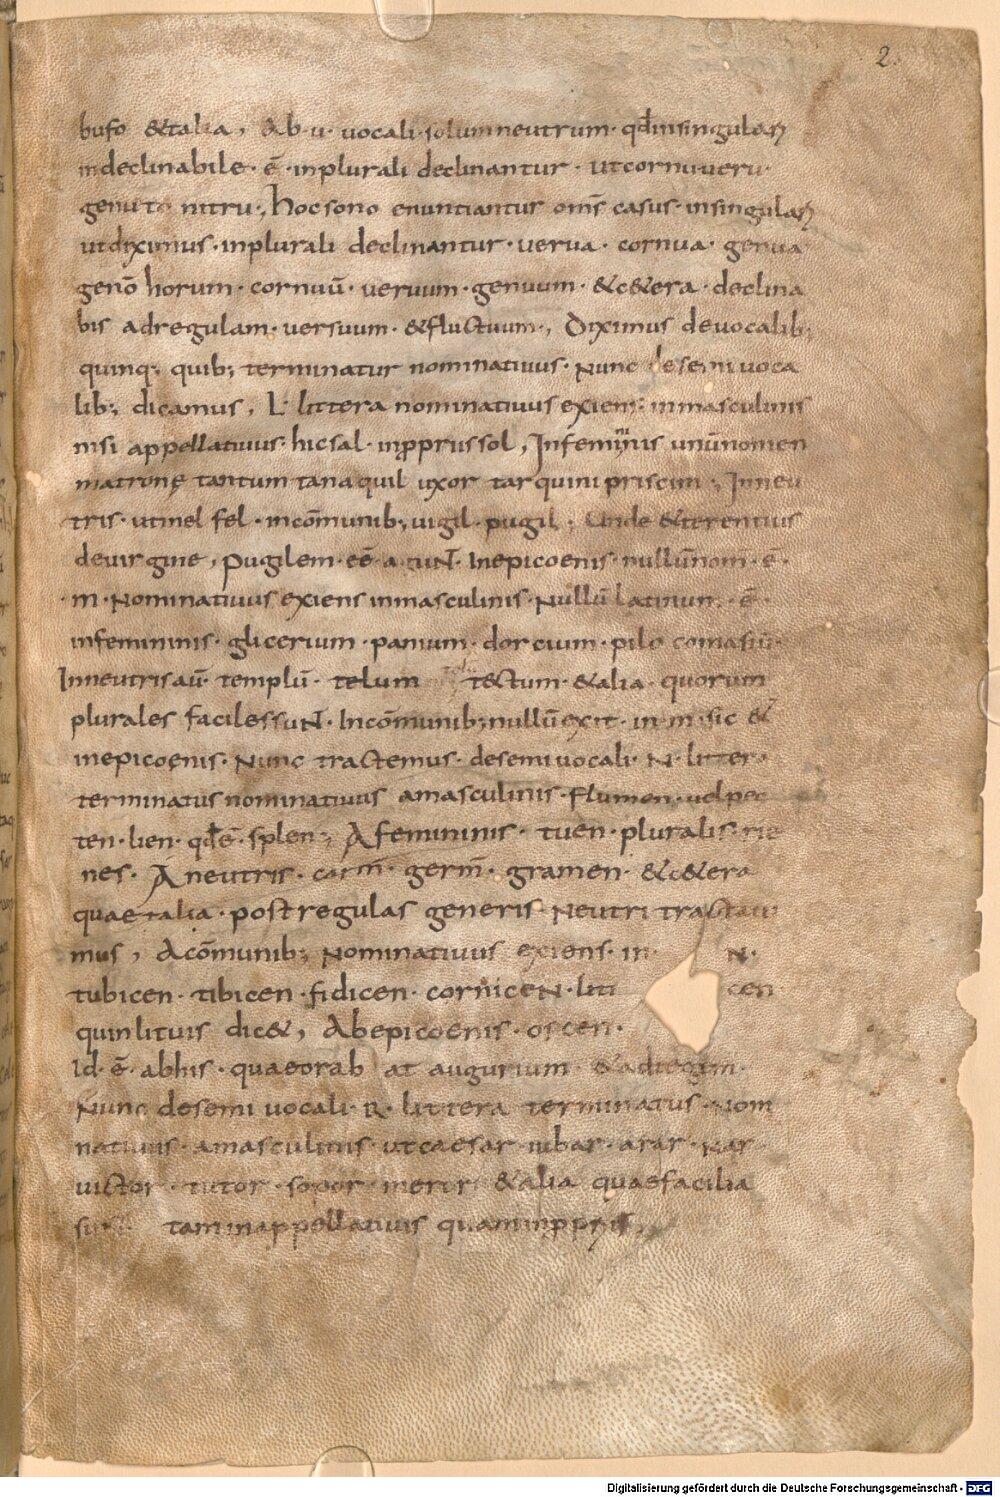 2
bufo &talia, Ab·u· vocali·solumneutrum· qđinsingulari
indeclinabile· ē· inplurali declinantur· utcornu·veru·
genu nitru·, hocsono enuntiantur om̅s casus·insingulari
utdiximus·inplurali declinantur·verua· cornua· genua
genō horum· cornuū· veruum·genuum· &c&era·declina
bis adregulam·versuum· &fluctuum·, Diximus devocalib;
quinq; quib; terminatur nominativus· Nunc desemivoca
lib; dicamus, L· littera nominativus exiens inmasculinis
nisi appellativus·hicsal·inꝓprussol, Infemininis unūnomen
matronę tantum tanaquil uxor tarquini prisci·, Inneu
tris·utmel fel·incōmunib; vigil·pugil, Unde &terentius
devirgine, pugilem·eē·aiuNT· Inepicoenis·nullūnom·ē·
·m·Nominativus exiens inmasculinis·Nullū latinum·ē·
infemininis·glicerium·panium·dorcium·pilo comasiū·
Inneutrisaū· templū· telum tectum·&alia·quorum
plurales facilessuNT·Incōmunib;nullūexit·in·m·sic &
inepicoenis·Nunc tractemus·desemivocali·N·litter
terminatus nominativus amasculinis·flumen·vel pec
ten·lien·qđē·splen·, A femininis·tuen·pluralis·rie
nes· A neutris· carm̅·germ̅·gramen·&c&era
quaetalia·postregulas generis Neutri tractavi
mus, Acōmunib; Nominativus exiens·in N·
tubicen·tibicen·fidicen·cornicen·liti cen
quinlituis dic&, Abepicoenis·oscen·
Id·ē·abhis·quaeorab at augurium
Nunc desemi vocali·R·littera terminatus·Nomi
nativus·amasculinis·utcaesar·iubar·arar·Nar
victor·tutor·sopor &alia quaefacilia
taminappellativis quaminꝓprys,
Digitalisierung gefördert durch die Deutsche Forschungsgemeinschaft - DFG